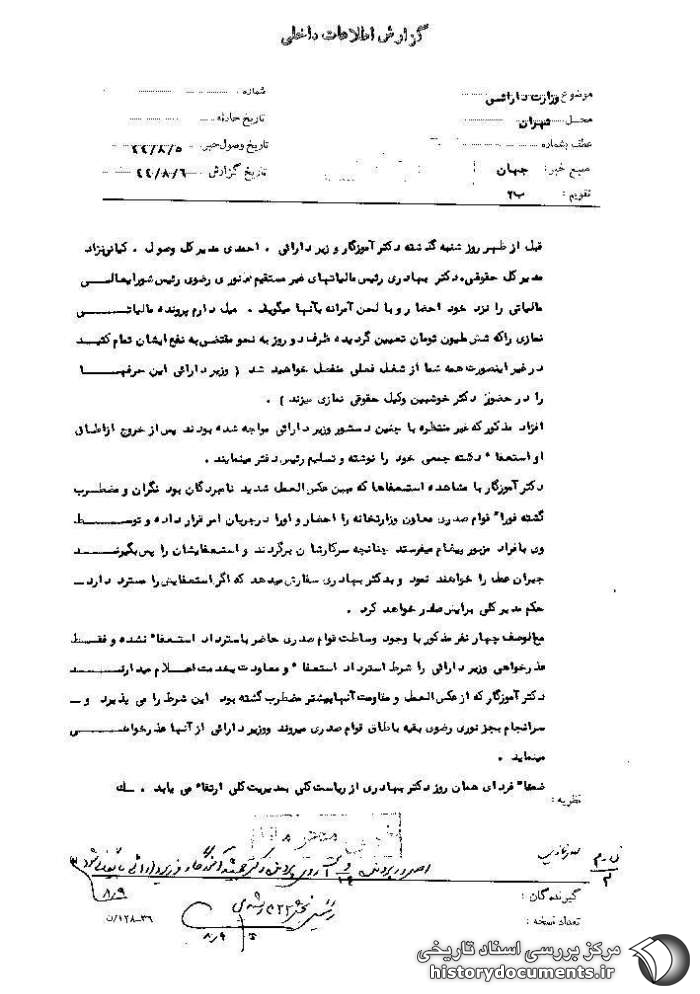 گزارش اطلاعات داخلی
موضوع وزارت دارائی
شماره
محل تهران
تاریخ حادثه
عطف بشماره
تاریخ وصول خبر ۴۴/۸/۵
منبع خبر: جهان
تاریخ گزارش ۴۴/۸/۶
تقویم: ب۲
قبل از ظهر روز شنبه گذشته دکتر آموزگار وزیر دارائی ، احمدی مدیرکل وصول ، کیانی‌نژاد
مدیرکل حقوقی، دکتر بهادری رئیس مالیاتهای غیر مستقیم نوری رضوی رئیس شورایعالی
مالیاتی را نزد خود احضار و با لحن آمرانه بآنها میگوید ، میل دارم پرونده مالیاتی
نمازی راکه شش ملیون تومان تعیین گردیده ظرف دو روز به نحو مقتضی به نفع ایشان تمام کنید
در غیر اینصورت همه شما از شغل فعلی منفصل خواهید شد ( وزیر دارائی این حرفها
را در حضور دکتر خوشبین وکیل حقوقی نمازی میزند ) .
افراد مذکور که غیر منتظره با چنین دستور وزیر دارائی مواجه شده بودند پس از خروج از اطاق
او استعفاء دسته جمعی خود را نوشته و تسلیم رئیس دفتر مینمایند .
دکتر آموزگار با مشاهده استعفاها که مبین عکس‌العمل شدید نامبردگان بود نگران و مضطرب
گشته فوراً قوام صدری معاون وزارتخانه را احضار و اورا درجریان امر قرار داده و توسط
وی بافراد مزبور پیغام میفرستد چنانچه سرکارشان برگردند و استعفایشان را پس بگیرند
جبران عمل را خواهند نمود و بدکتر بهادری سفارش میدهد که اگر استعفایش را مسترد دارد
حکم مدیرکلی برایش صادر خواهد کرد .
مع‌الوصف چهار نفر مذکور با وجود وساطت قوام صدری حاضر باسترداد استعفاء نشده و فقط
عذرخواهی وزیر دارائی را شرط استرداد استعفاء و معاودت بخدمت اعلام میدارند
دکتر آموزگار که از عکس‌العمل و مقاومت آنها بیشتر مضطرب گشته بود این شرط را می پذیرد و
سرانجام بجز نوری رضوی بقیه باطاق قوام صدری میروند ووزیر دارائی از آنها عذرخواهی
مینماید .
ضمناً فردای همان روز دکتر بهادری از ریاست کلی بمدیریت کلی ارتقاء می یابد . ك
نظریه:
گیرندگان:
۸/۹
تعداد نسخه:
مرکز بررسی اسناد تاریخی
historydocuments.ir